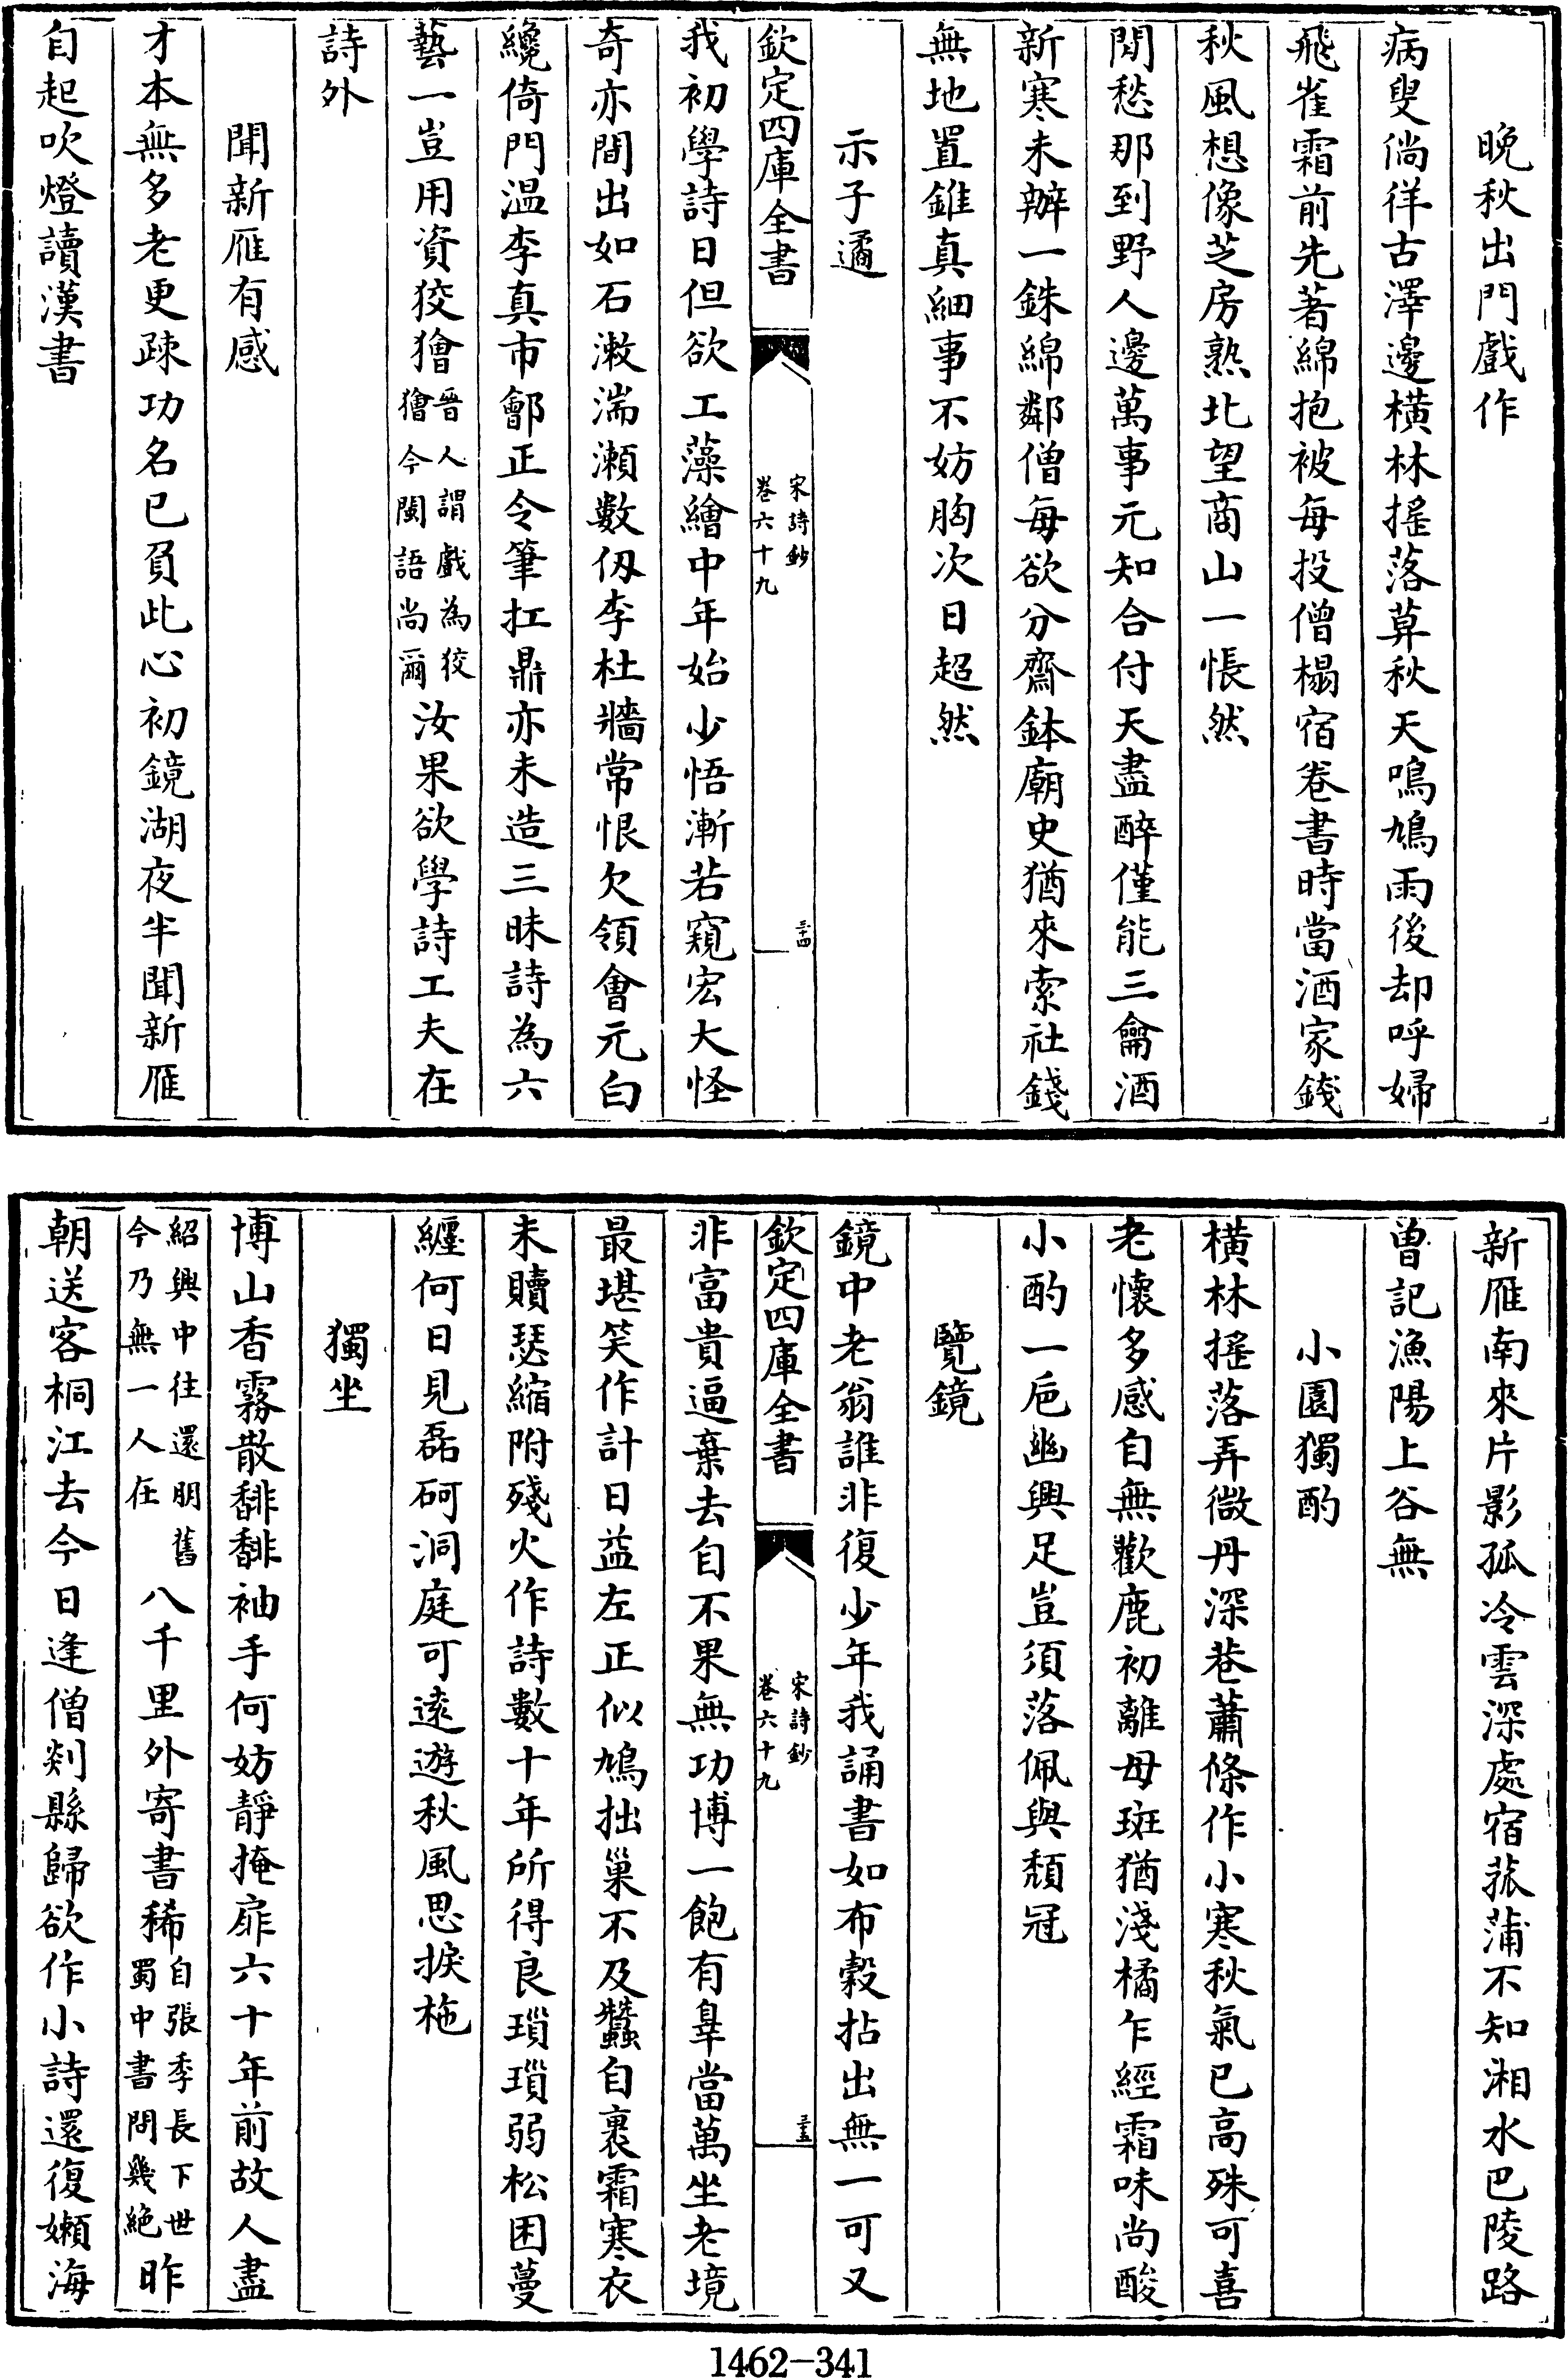 晚秋出門戲作
病叟徜徉古澤邊橫林搖落莫秋天鳴鳩雨後却呼婦
飛雀霜前先著綿抱被每投僧榻宿卷書時當酒家錢
秋風想像芝房熟北望商山一悵然
閒愁那到野人邊萬事元知合付天盡醉僅能三龠酒
新寒未辦一銖綿鄰僧每欲分齋鉢廟史猶來索社錢
無地置錐真細事不妨胸次日超然
示子遹
欽定四庫全書
宋詩鈔
卷六十九
三十四
我初學詩日但欲工藻繪中年始少悟漸若窺宏大怪
奇亦間出如石漱湍瀨數仭李杜牆常恨欠領會元白
纔倚門温李真市鄶正令筆扛鼎亦未造三昧詩為六
藝一豈用資狡獪晉人謂戲為狡
獪今閩語尚爾汝果欲學詩工夫在
詩外
聞新雁有感
才本無多老更疎功名已負此心初鏡湖夜半聞新雁
自起吹燈讀漢書
新雁南來片影孤冷雲深處宿菰蒲不知湘水巴陵路
曽記漁陽上谷無
小園獨酌
橫林搖落弄微丹深巷蕭條作小寒秋氣已高殊可喜
老懷多感自無歡鹿初離母斑猶淺橘乍經霜味尚酸
小酌一巵幽興足豈須落佩與頽冠
覽鏡
鏡中老翁誰非復少年我誦書如布穀拈出無一可又
欽定四庫全書
宋詩鈔
卷六十九
三十五
非富貴逼棄去自不果無功博一飽有辠當萬坐老境
最堪笑作計日益左正似鳩拙巢不及蠶自裹霜寒衣
未贖瑟縮附殘火作詩數十年所得良瑣瑣弱松困蔓
纏何日見磊砢洞庭可遠遊秋風思捩柁
獨坐
博山香霧散馡馡袖手何妨靜掩扉六十年前故人盡
紹興中往還朋舊
今乃無一人在八千里外寄書稀自張季長下世
蜀中書問幾絶昨
朝送客桐江去今日逢僧剡縣歸欲作小詩還復嬾海
1462-341